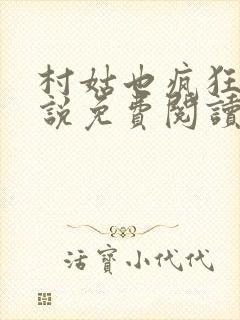 村姑也疯狂
說免費閱讀
活寶小代代